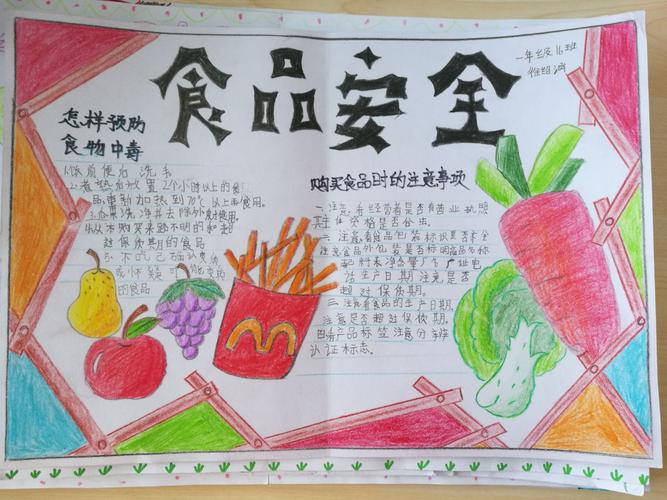 食品安全
一年级16班
怎样预防
食物中毒
1.饭前便后洗手
2.煮熟后放置2个小时以上的食
品重新加热到70℃以上再食用。
3.瓜果洗净并去除外皮才使用。
4.从不购买来路不明的和超
过保质期的食品
5.不吃已
或怀疑可能变
的食品
购买食品时的注意事项
一.注意看经营者是否有营业执照
其主体资格是否合法。
二.注意看食品包装标识是否齐全
注意食品外包装是否标明商品名称
配料表净含量厂名厂址电
话生产日期注意是否
超过保质期。
三.注意看食品的生产日期。
注意是否超过保质期。
四看产品标签注意分
认证标志。